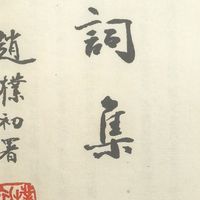 詞集
趙樸初署